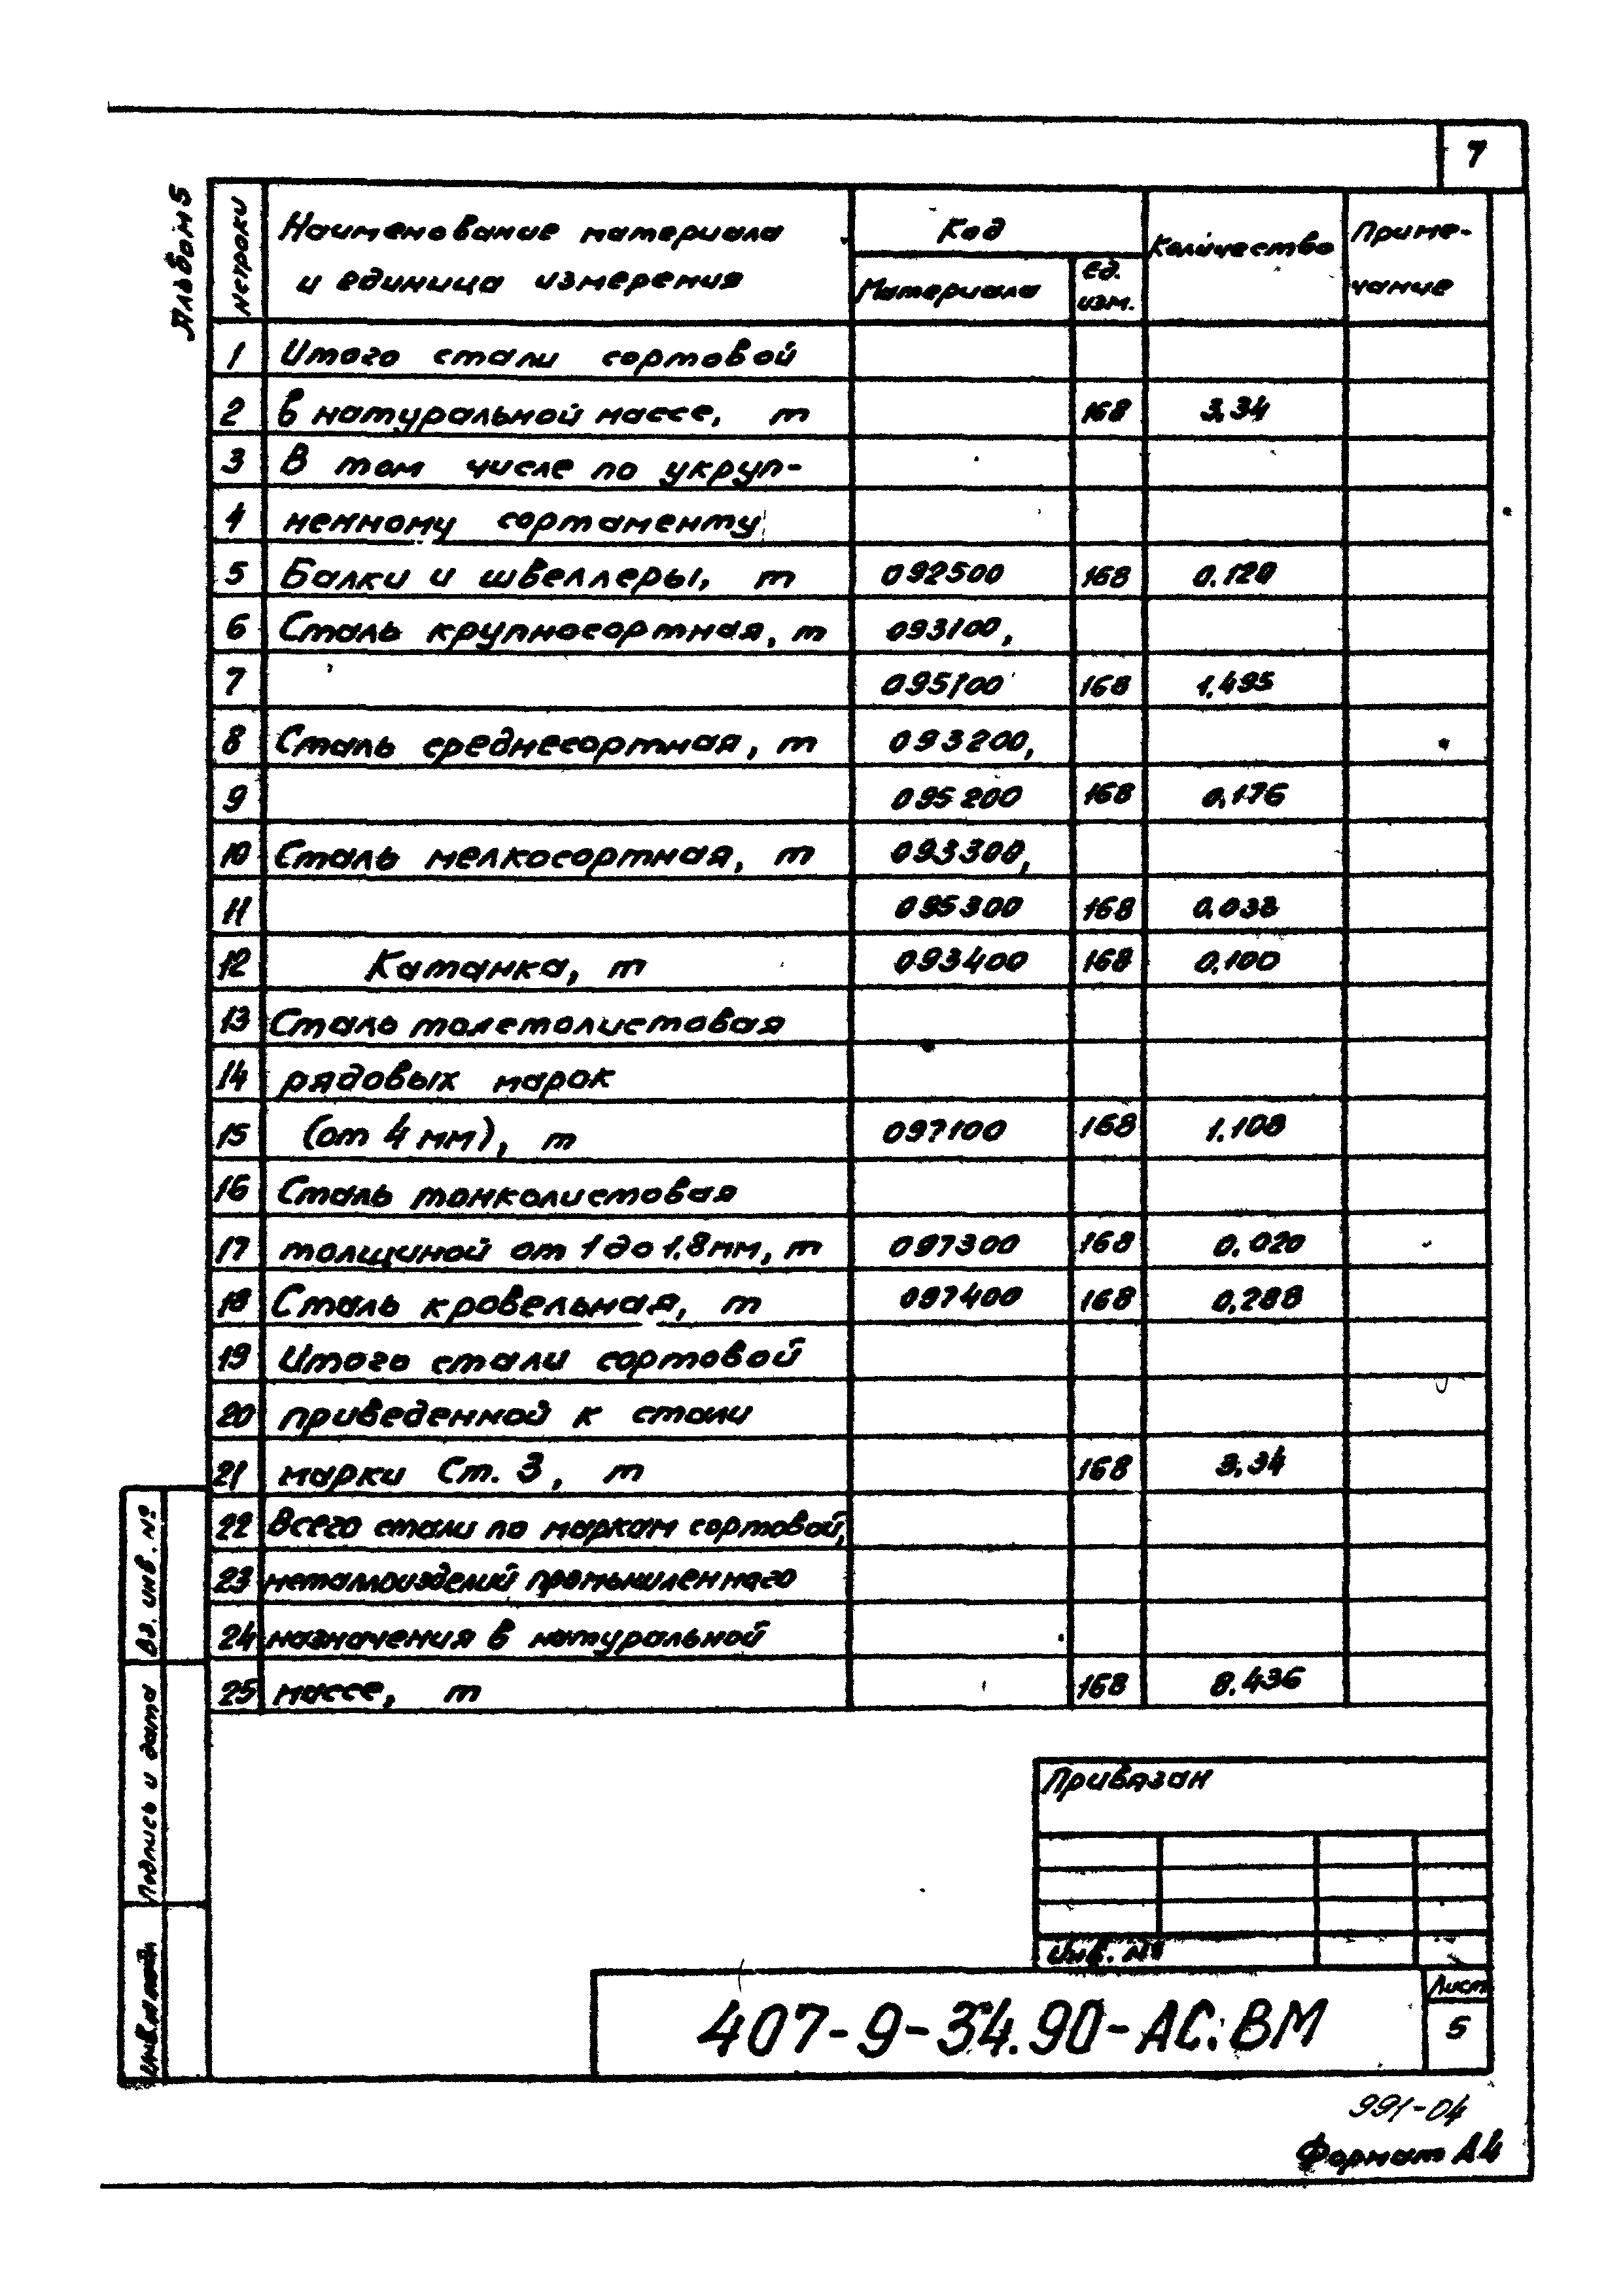 7
Альбом 5
№ строки
Наименование материала
и единица измерения
Код
Материала
Ед.
изм.
Количество
Приме-
чание
1 Итого стали сортовой
2 в натуральной массе, т 168 3,34
3 В том числе по укруп-
4 ненному сортаменту
5 Балки и швеллеры, т 092500 168 0.129
6 Сталь крупносортная, т 093100,
7 095100 168 1.495
8 Сталь среднесортная, т 093200,
9 095200 168 0,176
10 Сталь мелкосортная, т 093300,
11 095300 168 0,038
12 Катанка, т 093400 168 0,100
13 Сталь толстолистовая
14 рядовых марок
15 (от 4 мм), т 097100 168 1.108
16 Сталь тонколистовая
17 толщиной от 1 до 1.8 мм, т 097300 168 0.020
18 Сталь кровельная, т 097400 168 0,288
19 Итого стали сортовой
20 приведенной к стали
21 марки Ст. 3, т 168 3,34
22 Всего стали по маркам сортовой,
23 металлоизделий промышленного
24 назначения в натуральной
25 массе, т 168 8.436
Вз. инв. №
Подпись и дата
Инв. № подл.
Привязан
Инв. №
407-9-34.90-АС.ВМ
Лист
5
991-04
Формат А4